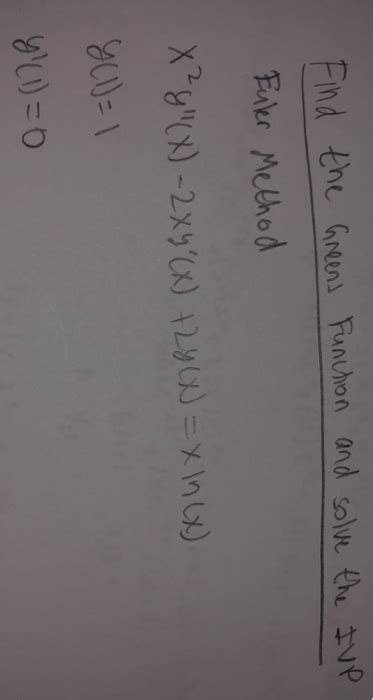 Find the Greens Function and solve the IVP
Euler Method
x²y''(x) - 2xy'(x) + 2y(x) = x ln(x)
y(1) = 1
y'(1) = 0